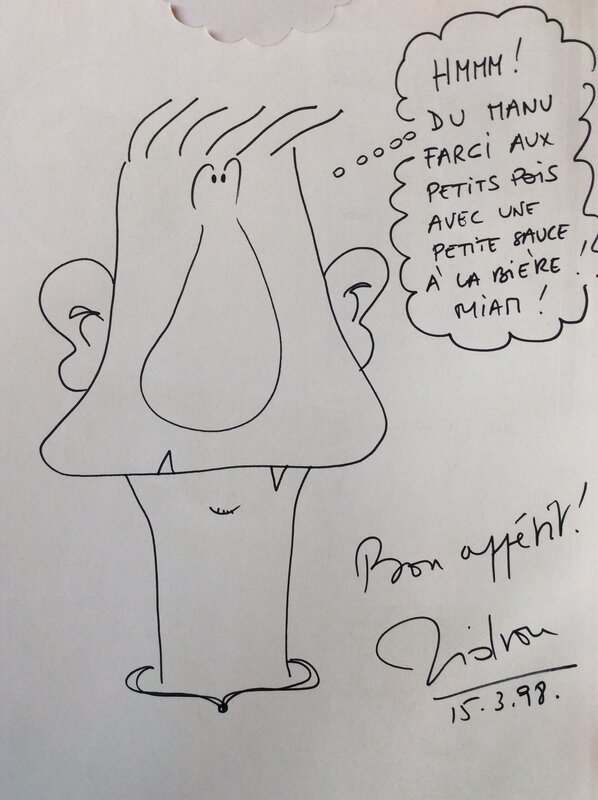 HMMM !
DU MANU
FARCI AUX
PETITS POIS
AVEC UNE
PETITE SAUCE
À LA BIÈRE !
MIAM !
Bon appétit !
Zidrou
15.3.98.